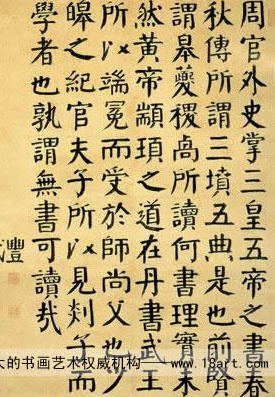 周官外史掌三皇五帝之書春
秋傳所謂三墳五典是也前賢
謂皋夔稷卨所讀何書理實未
然黃帝顓頊之道在丹書武王
所以端冕而受於師尚父也少
皞之紀官夫子所以見剡子而
學者也孰謂無書可讀哉
豐
大的书画艺术权威机构 www.18art.com